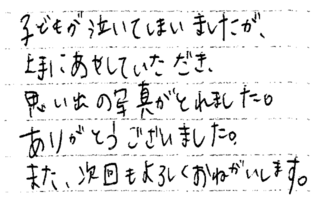 子どもが泣いてしまいましたが、
上手にあせしていただき、
思い出の写真がとれました。
ありがとうございました。
また、次回もよろしくおねがいします。